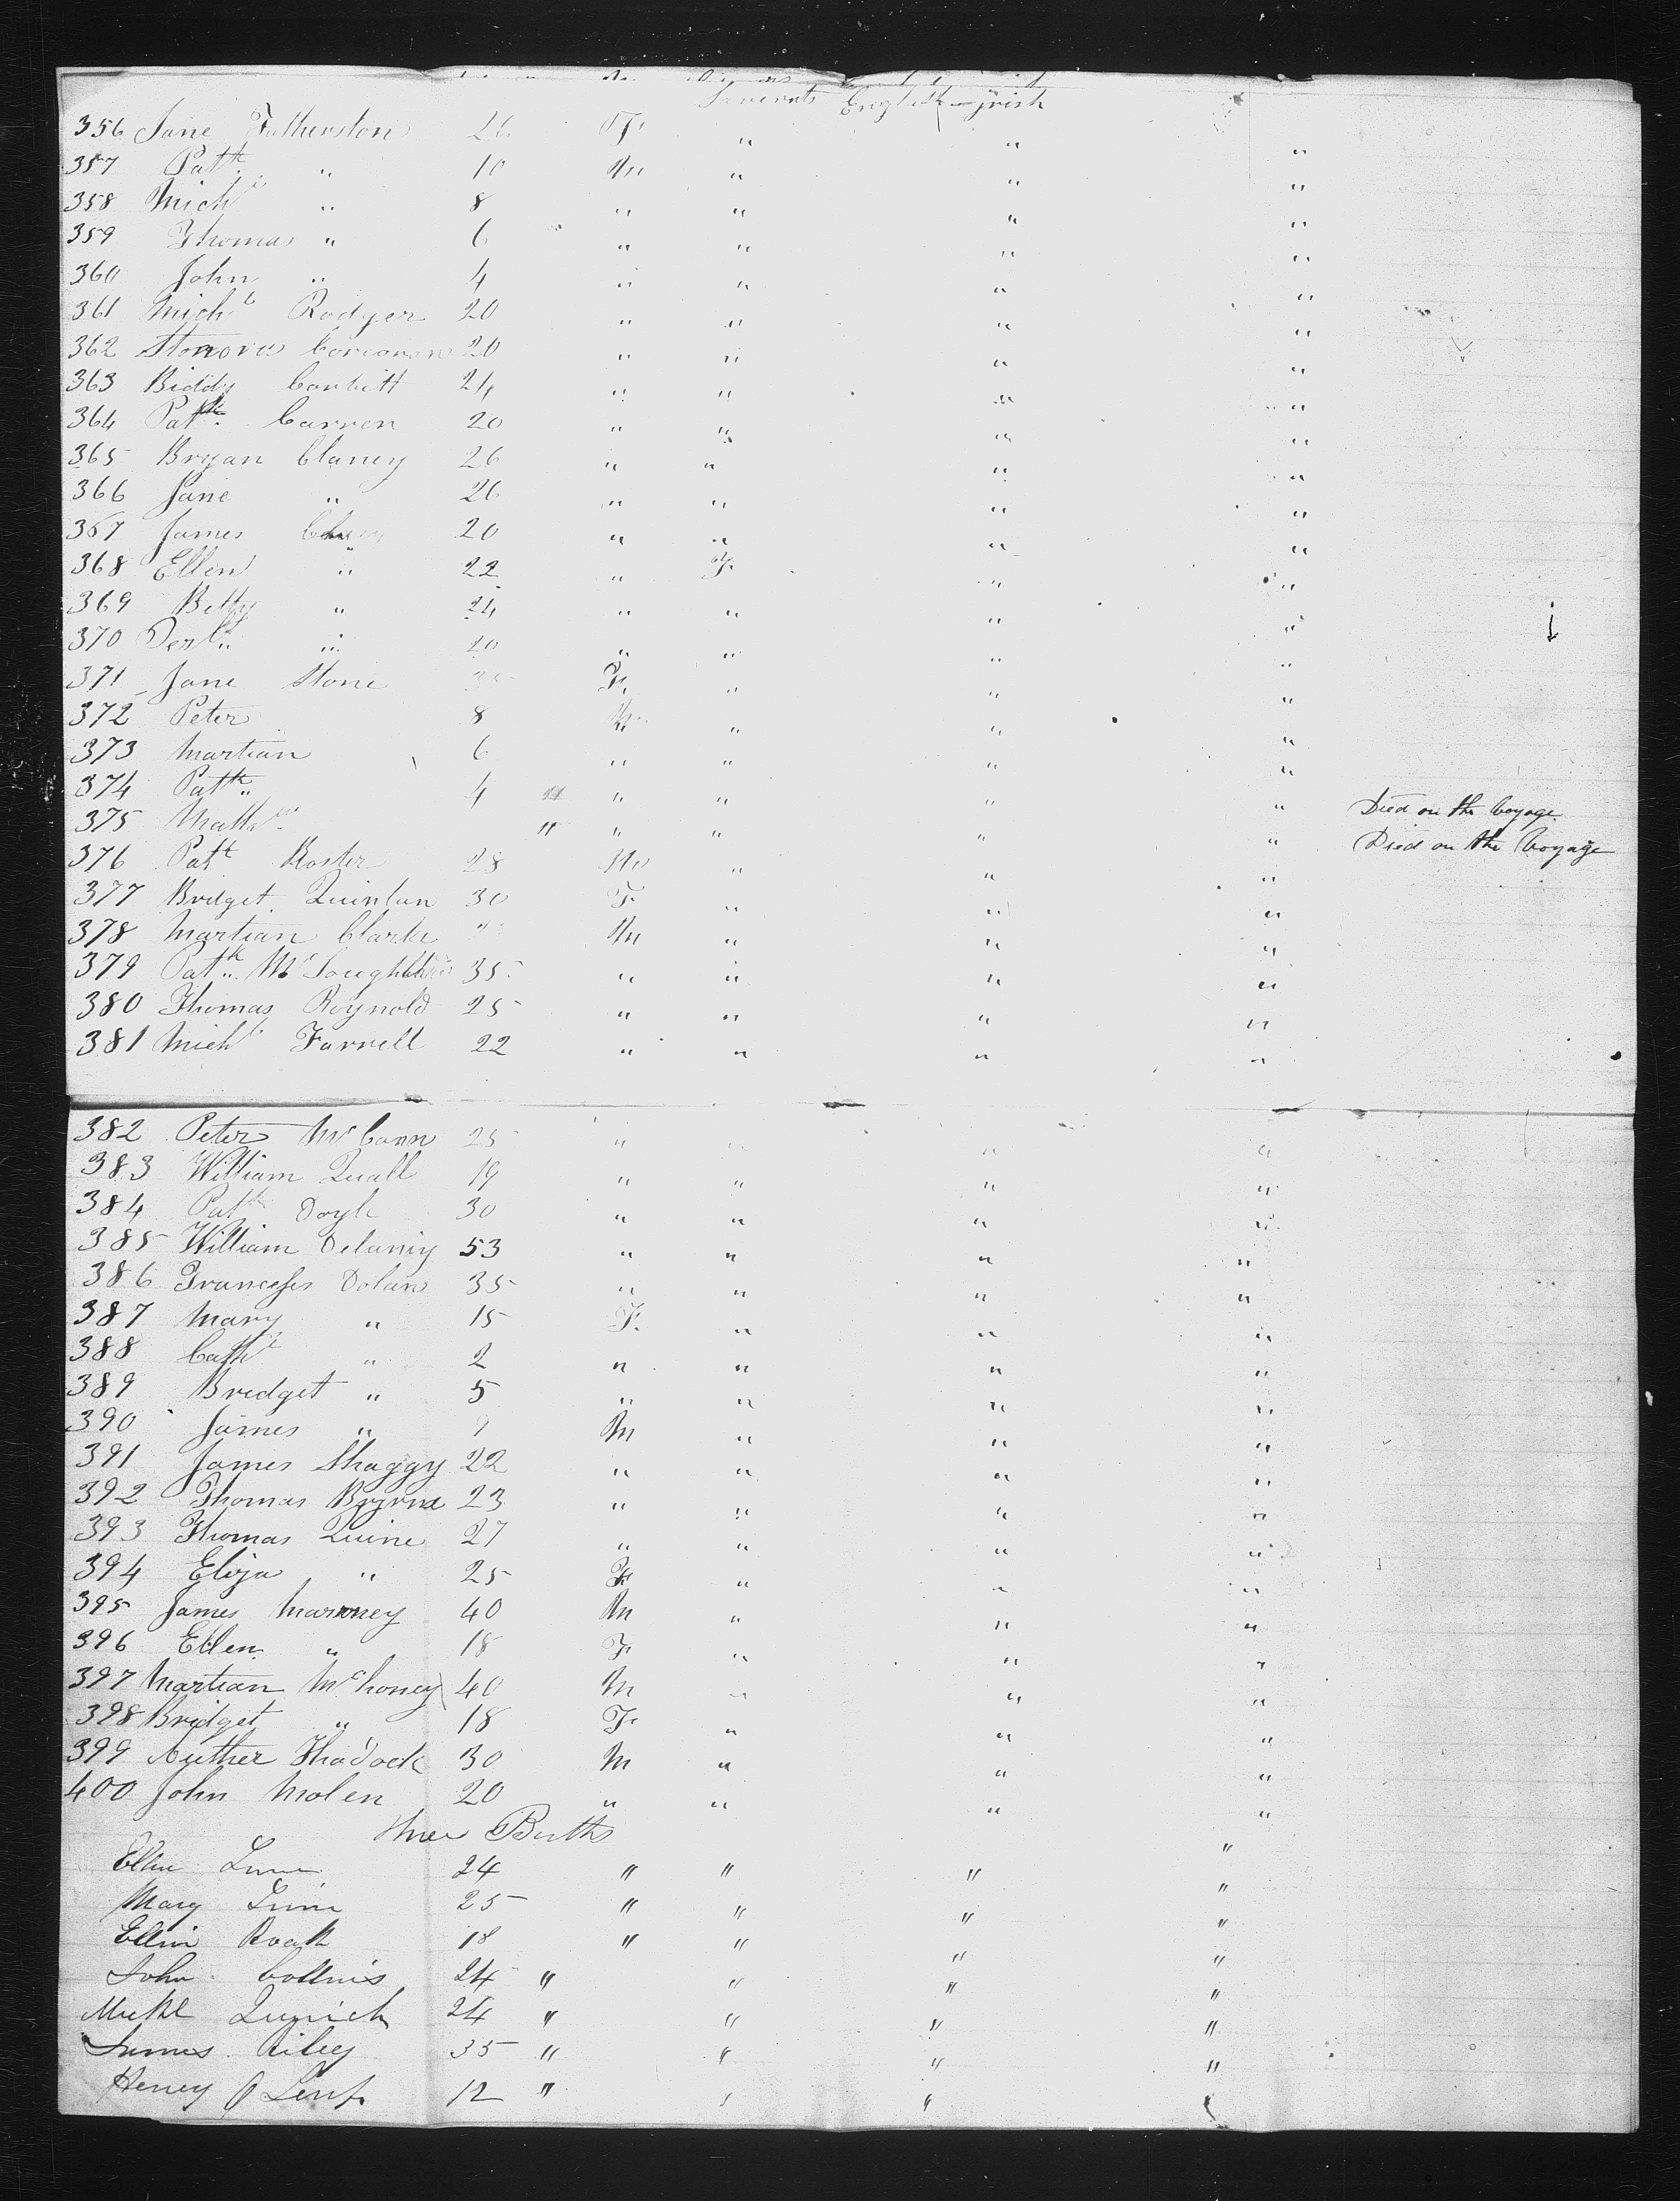 Servents English Irish
356 Jane Fatherston 26 F. " " "
357 Patk " 10 M " " "
358 Michl " 8 " " " "
359 Thomas " 6 " " " "
360 John " 4 " " " "
361 Michl Rodger 20 " " " "
362 Corcoran 20 " " " "
363 Biddy Corbitt 24 " " " "
364 Patk Carren 20 " " " "
365 Bryan Clancy 26 " " " "
366 Jane " 26 " " " "
367 James 20 " " " "
368 Ellen " 22 " F. " "
369 Betty " 24 " " " "
370 " 20 " " " "
371 Jane Stone 35 F. " " "
372 Peter 8 M " " "
373 Martian 6 " " " "
374 Patk 4 " " " " " Died on the Voyage
375 Mathw " " " " " Died on the Voyage
376 Patk Koster 28 M " " "
377 Bridget Quinlan 30 F. " " "
378 Martian Clarke " M " " "
379 Patk 35 " " " "
380 Thomas Roynold 25 " " " "
381 Michl Farrell 22 " " " "
382 Peter McCann 25 " " "
383 William Quall 19 " " " "
384 Patk Doyle 30 " " " "
385 William Delaniy 53 " " " "
386 Francess Dolan 35 " " " "
387 Mary " 15 F. " " "
388 Cath " 2 " " " "
389 Bridget " 5 " " " "
390 James " 9 M " " "
391 James Shaggy 22 " " " "
392 Thomas Byrne 23 " " " "
393 Thomas Quine 27 " " " "
394 Eliza " 25 F " " "
395 James Maroney 40 M " " "
396 Ellen " 18 F. " " "
397 Martian McHoney 40 M " " "
398 Bridget " 18 F. " " "
399 Auther Thadock 30 M " " "
400 John Molen 20 " " " "
three Births "
Ellen 24 " " " "
Mary 25 " " " "
Ellin Roak 18 " " " "
John Collins 24 " " " "
Mickl 24 " " " "
James Riley 35 " " " "
Heney 12 " " "